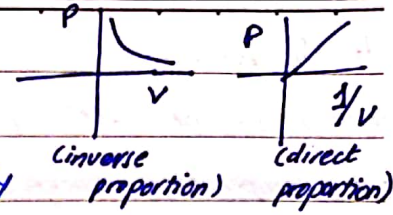 P
V
(inverse
proportion)
P
1/V
(direct
proportion)